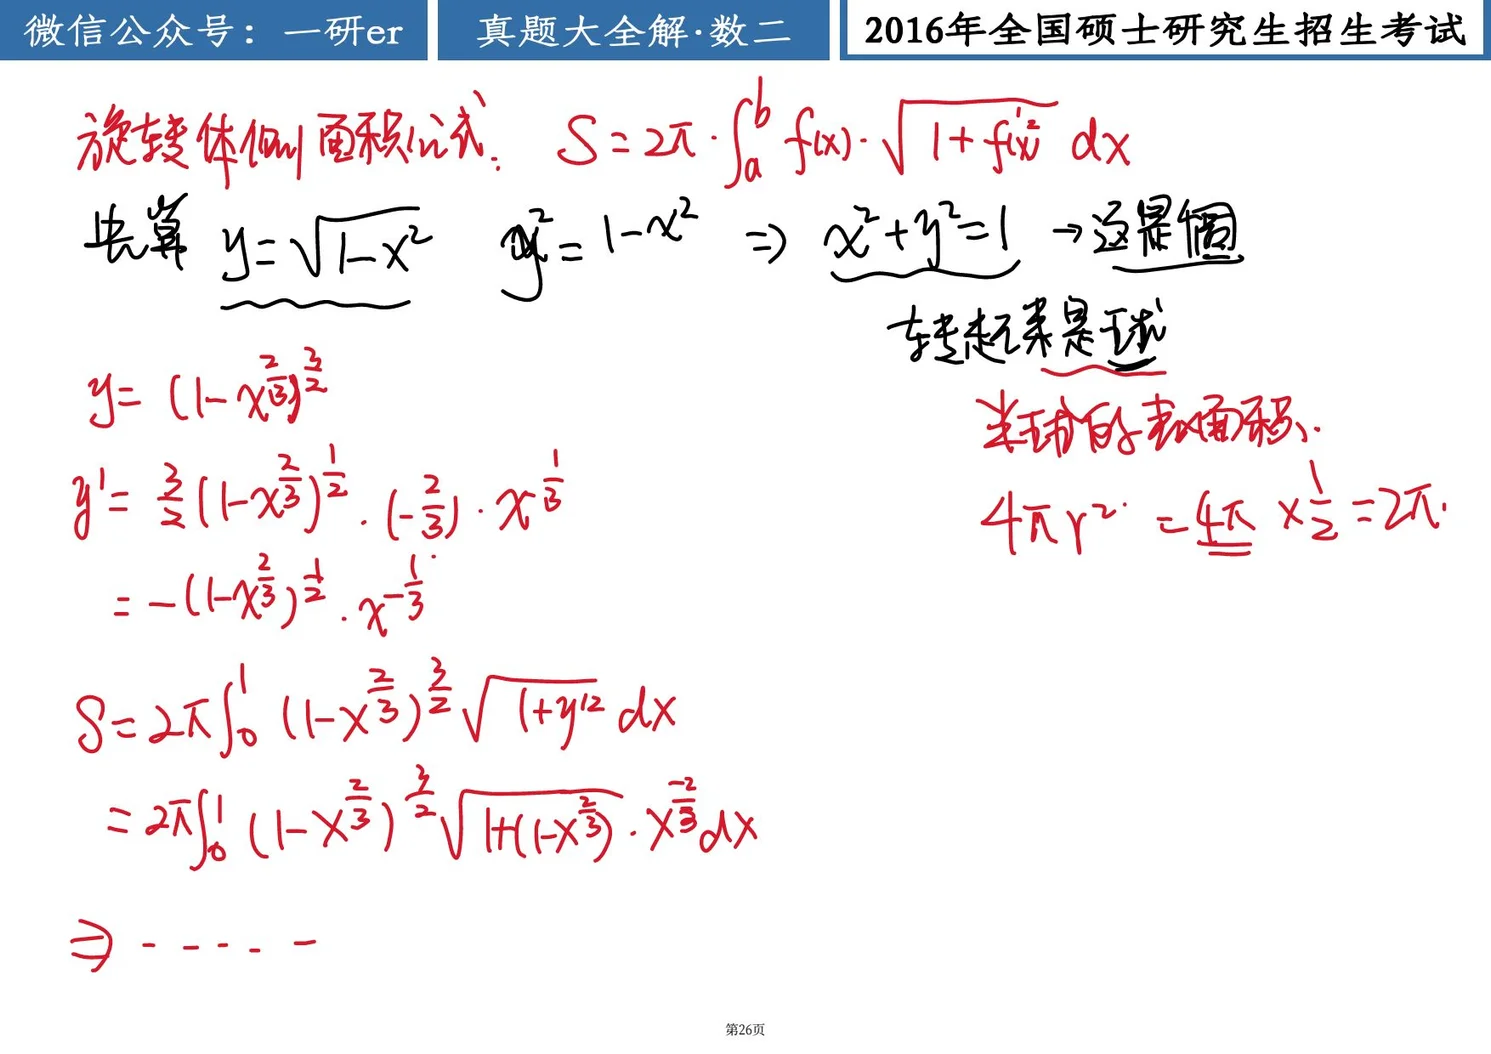 微信公众号：一研er
真题大全解·数二
2016年全国硕士研究生招生考试
旋转体侧面积公式: S = 2π · ∫_a^b f(x) · √(1 + f'(x)²) dx
先算 y = √(1-x²) y² = 1-x² ⇒ x²+y²=1 → 这是个圆
转起来是球
半球的表面积.
4πr² = 4π × 1/2 = 2π.
y = (1-x^(2/3))^(3/2)
y' = 3/2 (1-x^(2/3))^(1/2) · (-2/3) · x^(-1/3)
= -(1-x^(2/3))^(1/2) · x^(-1/3)
S = 2π ∫_0^1 (1-x^(2/3))^(3/2) √(1+y'²) dx
= 2π ∫_0^1 (1-x^(2/3))^(3/2) √(1+(1-x^(2/3)) · x^(-2/3) dx
⇒ - - - - -
第26页